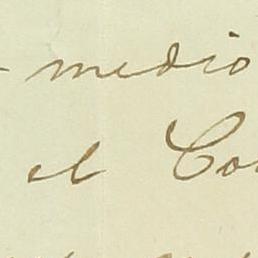 - medio
el Co